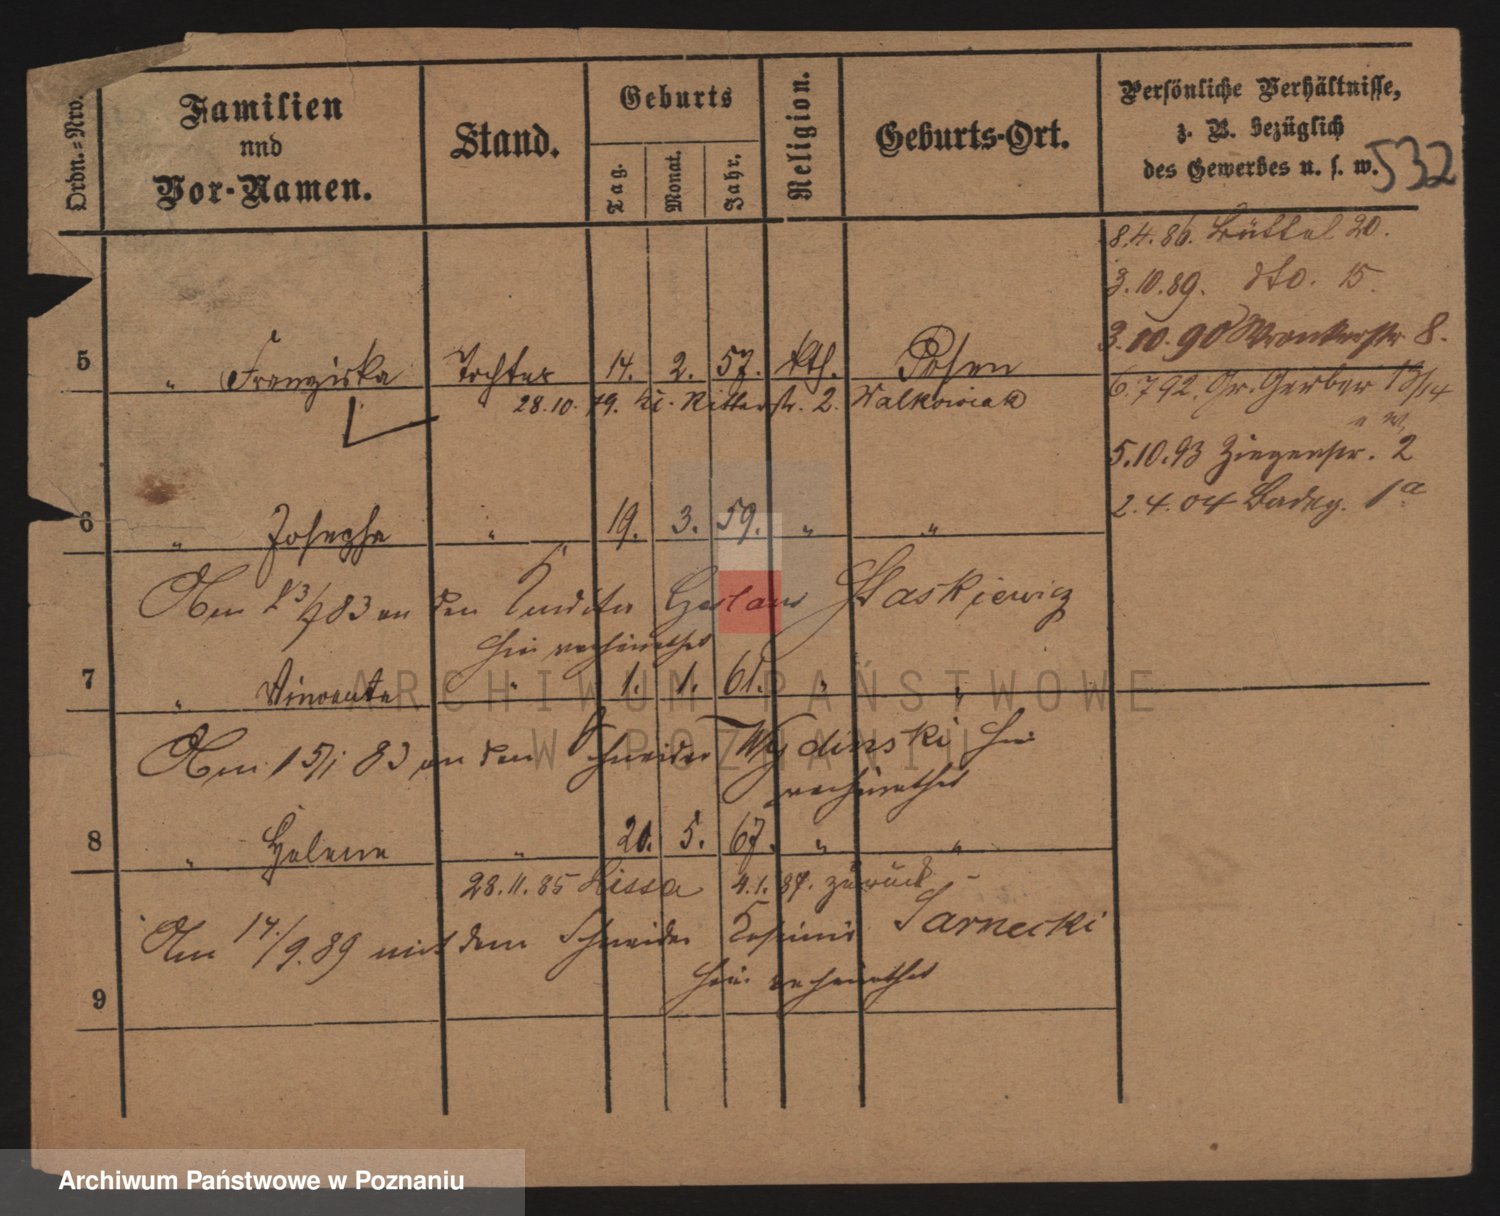 Ordn.=Nro.
Familien
und
Vor-Namen.
Stand.
Geburts
Tag.
Monat.
Jahr.
Religion.
Geburts-Ort.
Persönliche Verhältnisse,
z. B. bezüglich
des Gewerbes u. s. w.
532
8.4.86. Büttel 20.
3.10.89. dto. 15.
3.10.90 Wronkerstr 8.
5 " Franziska Tochter 14. 2. 57. kth. Posen
6.7.92. Gr. Gerber 13/14
28.10.79. kl. Ritterstr. 2. Walkowiak
5.10.93 Ziegenstr. 2
2.4.04 Badeg. 1a
6 " Josepha " 19. 3. 59. " "
Am 23/7 83 an den Konditor Staskiewicz
hier verheirathet
7 " Vincenta " 1. 1. 61. " "
Am 15/1 83 an den Schneider Wydinski hier
verheirathet
8 " Helene " 20. 5. 67. " "
28.11.85 Lissa 4.1.87. zurück
Am 14/9.89 mit dem Schneider Kasimir Sarnecki
hier verheirathet
9
ARCHIWUM PAŃSTWOWE
W POZNANIU
Archiwum Państwowe w Poznaniu